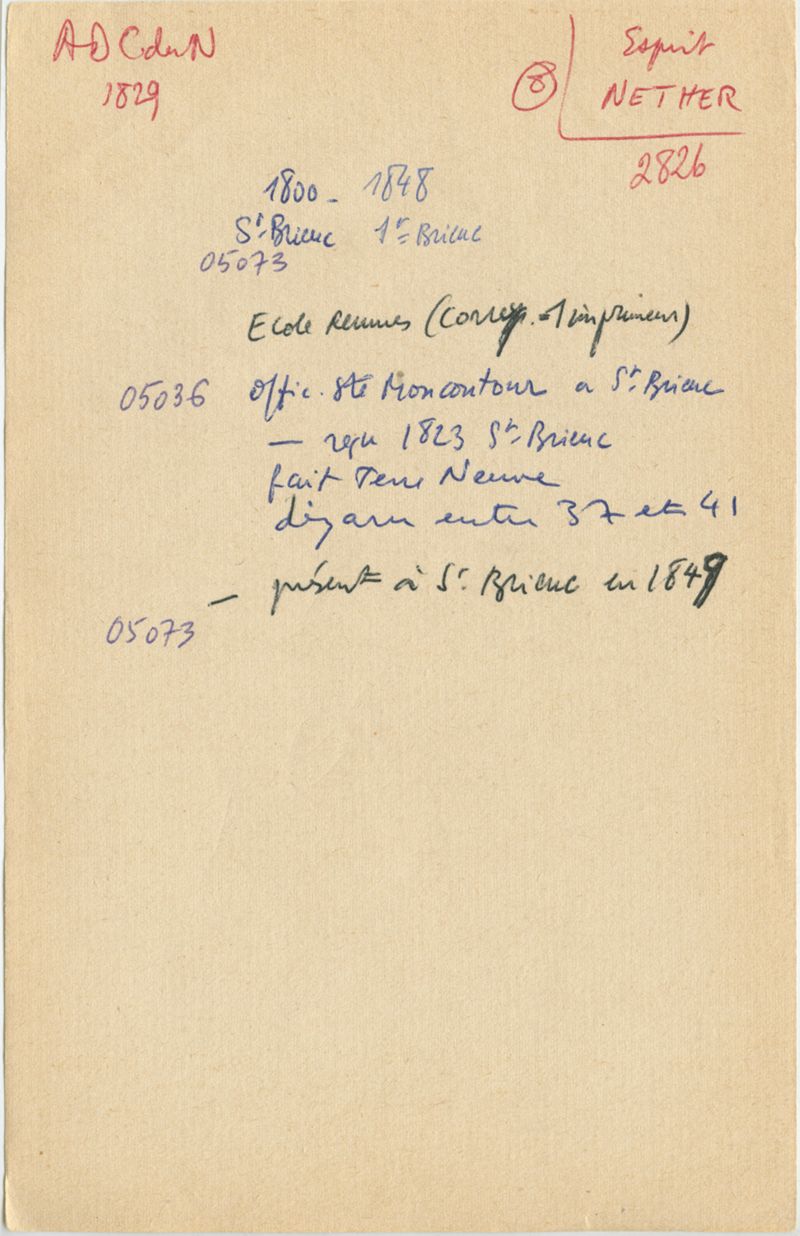 ADCduN
1829
8
Esprit
NETHER
2826
1800 - 1848
St-Brieuc 1t=Brieuc
05073
Ecole Rennes (Corresp. imprimeur)
05036 Offic. Ste Moncontour a St-Brieuc
— reçu 1823 St-Brieuc
fait Terre Neuve
disparu entre 37 et 41
— présent à St. Brieuc en 1849
05073